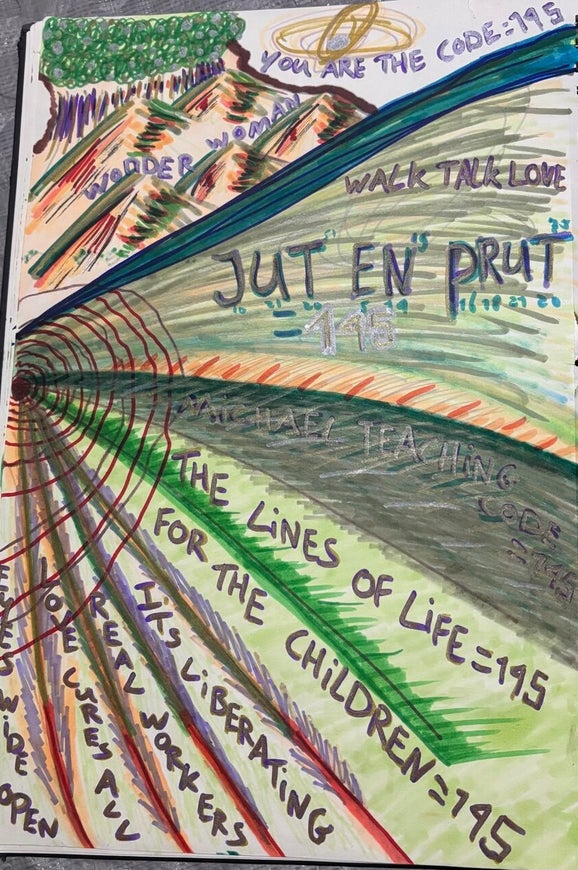 YOU ARE THE CODE=195
WONDER WOMAN
WALK TALK LOVE
JUT EN PRUT
195
MICHAEL TEACHING
CODE
=195
THE LINES OF LIFE=195
FOR THE CHILDREN=195
ITS LIBERATING
REAL WORKERS
LOVE CURES ALL
EYES WIDE OPEN